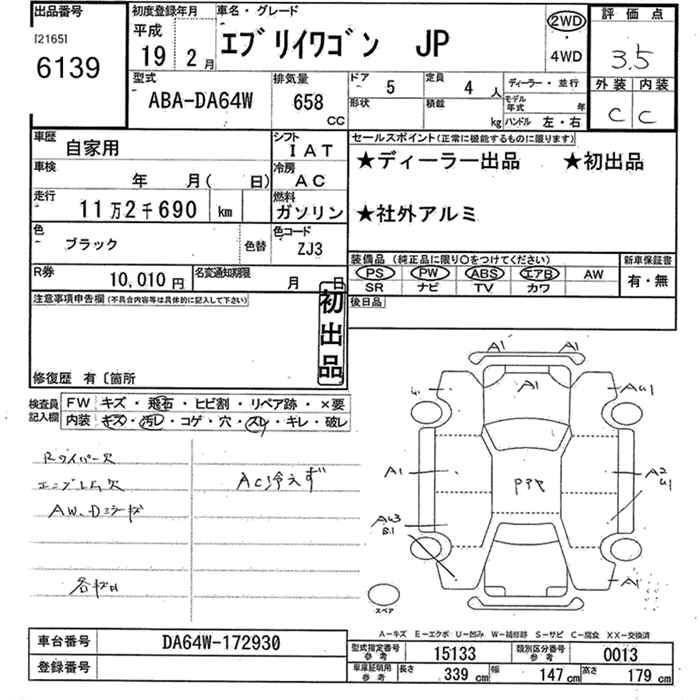 出品番号
[2165]
6139
初度登録年月
平成
19年 2月
車名・グレード
エブリイワゴン JP
2WD
・
4WD
評価点
3.5
外装 内装
C C
型式
ABA-DA64W
排気量
658
CC
ドア 5
形状
定員 4 人
積載 kg
ディーラー・並行
モデル年式 年
ハンドル 左・右
車歴 自家用
シフト IAT
車検 年 月( 日)
冷房 AC
走行 11万2千690 km
燃料 ガソリン
色 ブラック 色替
色コード ZJ3
R券 10,010円
名変通知期限 月 日
セールスポイント(正常に機能するものに限ります)
★ディーラー出品 ★初出品
★社外アルミ
装備品 (純正品に限り○をつけてください)
PS PW ABS エアB AW
SR ナビ TV カワ
新車保証書
有・無
後日品
注意事項申告欄(不具合内容等は具体的に記入して下さい)
初出品
修復歴 有〔箇所
検査員記入欄
FW キズ・飛石・ヒビ割・リペア跡・×要
内装 キズ・汚レ・コゲ・穴・スレ・キレ・破レ
Rワイパー欠
エンブレム欠
AC冷えず
A1 A1
A1
A1
A2
A1
スペア
A-キズ E-エクボ U-凹み W-補修跡 S-サビ C-腐食 XX-交換済
車台番号 DA64W-172930
登録番号
型式指定番号 参考 15133
類別区分番号 参考 0013
車庫証明用 参考 長さ 339 cm 幅 147 cm 高さ 179 cm